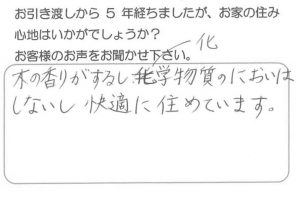 お引き渡しから 5 年経ちましたが、お家の住み
心地はいかがでしょうか?
お客様のお声をお聞かせ下さい。
化
木の香りがするし 化学物質のにおいは
しないし 快適に住めています。